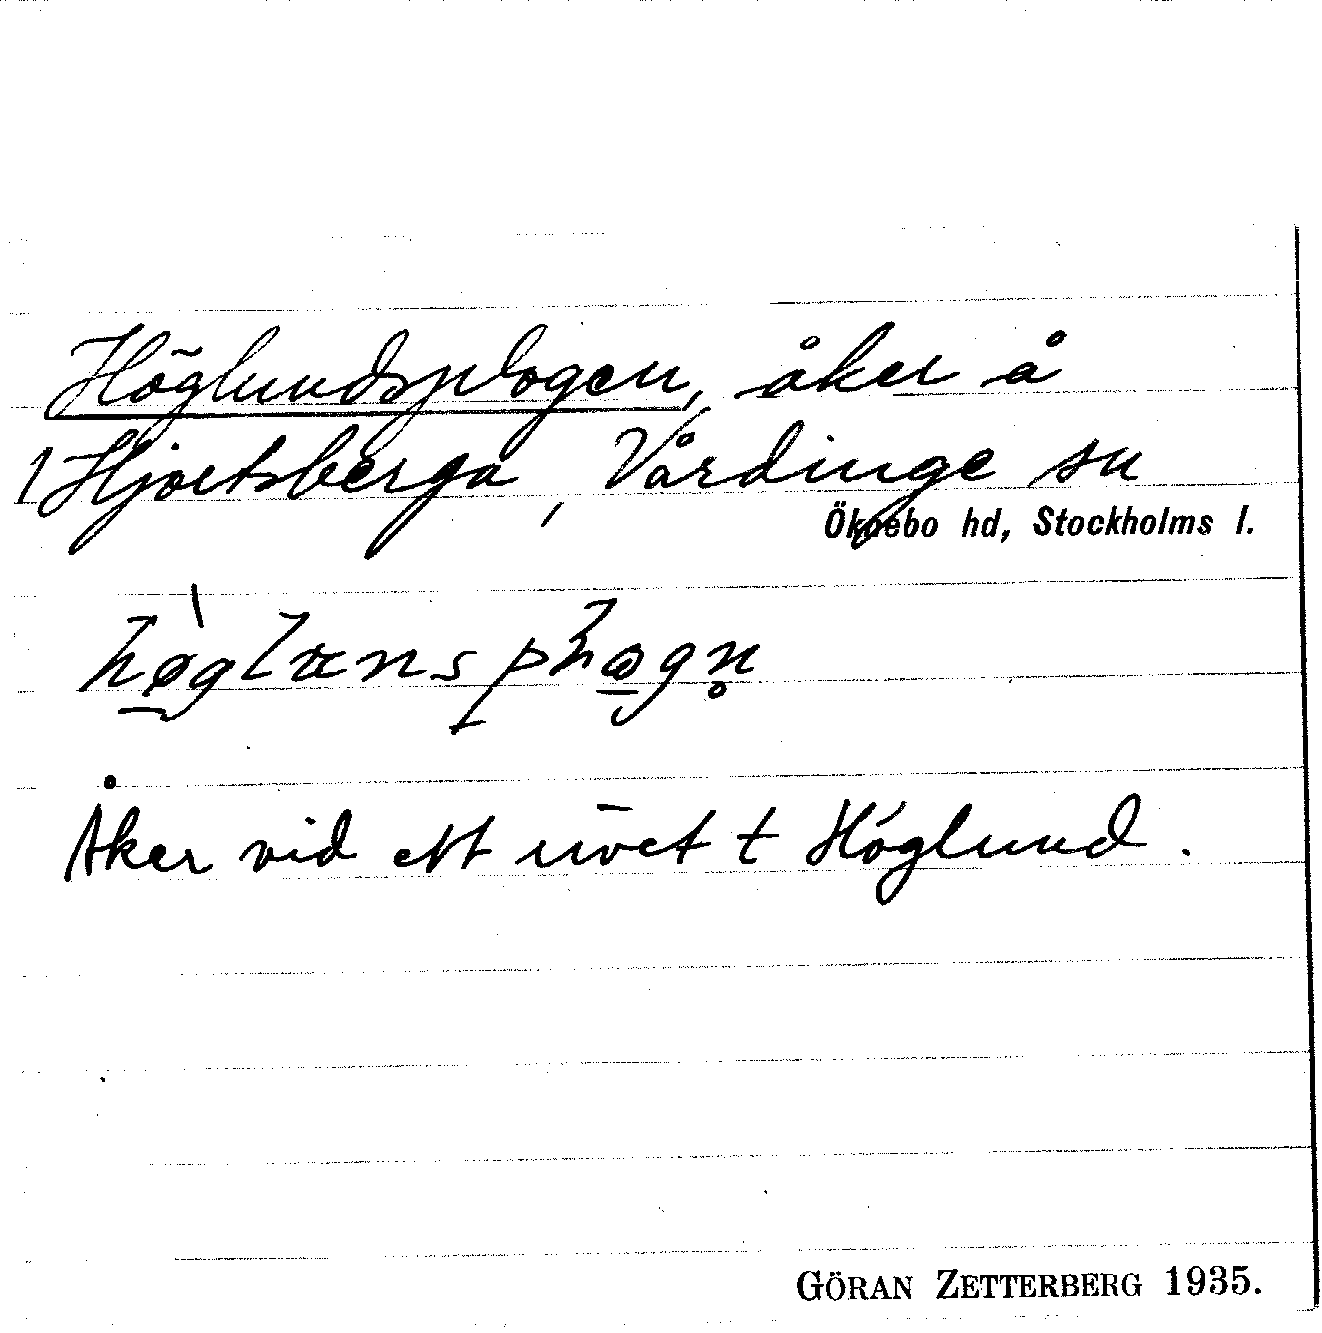 Höglundsplogen, åker å
1 Hjortsberga, Vårdinge sn
Öknebo hd, Stockholms l.
Åker vid ett t Höglund.
GÖRAN ZETTERBERG 1935.